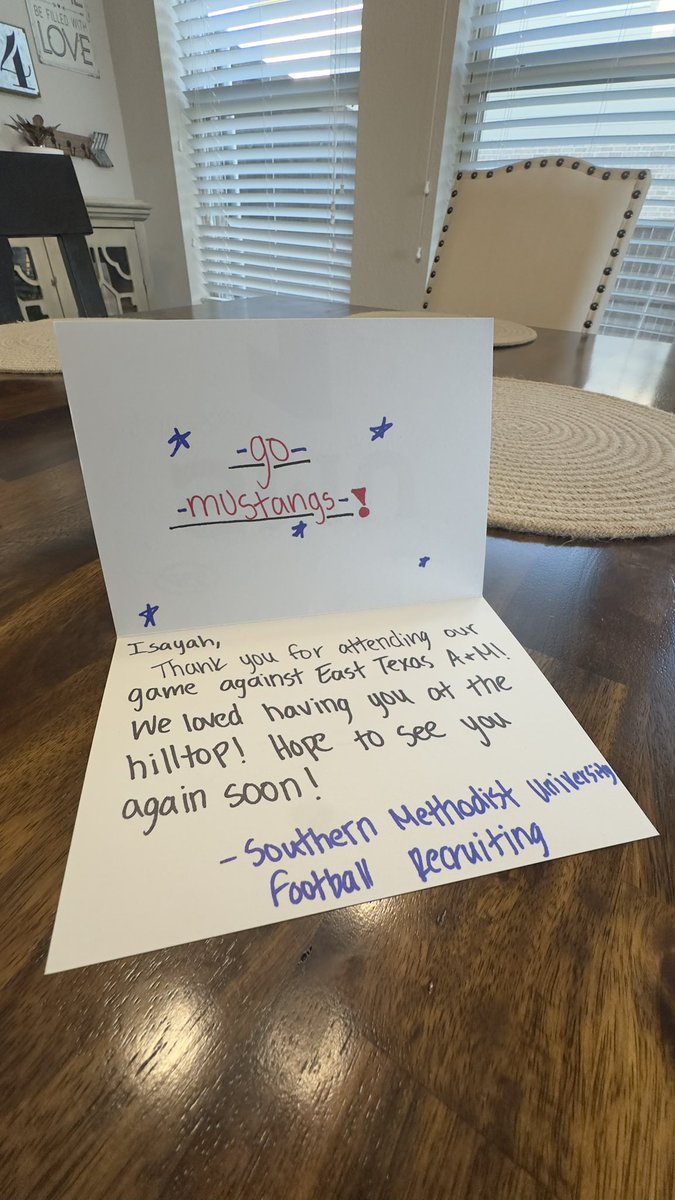 BE FILLED WITH
LOVE
4
-go-
-mustangs-!
Isayah,
Thank you for attending our
game against East Texas A+M!
We loved having you at the
hilltop! Hope to see you
again soon!
-Southern Methodist University
Football Recruiting